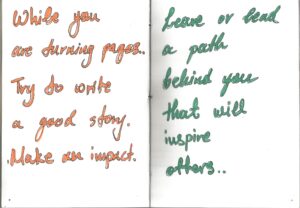 While you
are turning pages..
Try to write
a good story.
Make an impact.
Leave or lead
a path
behind you
that will
inspire
others..